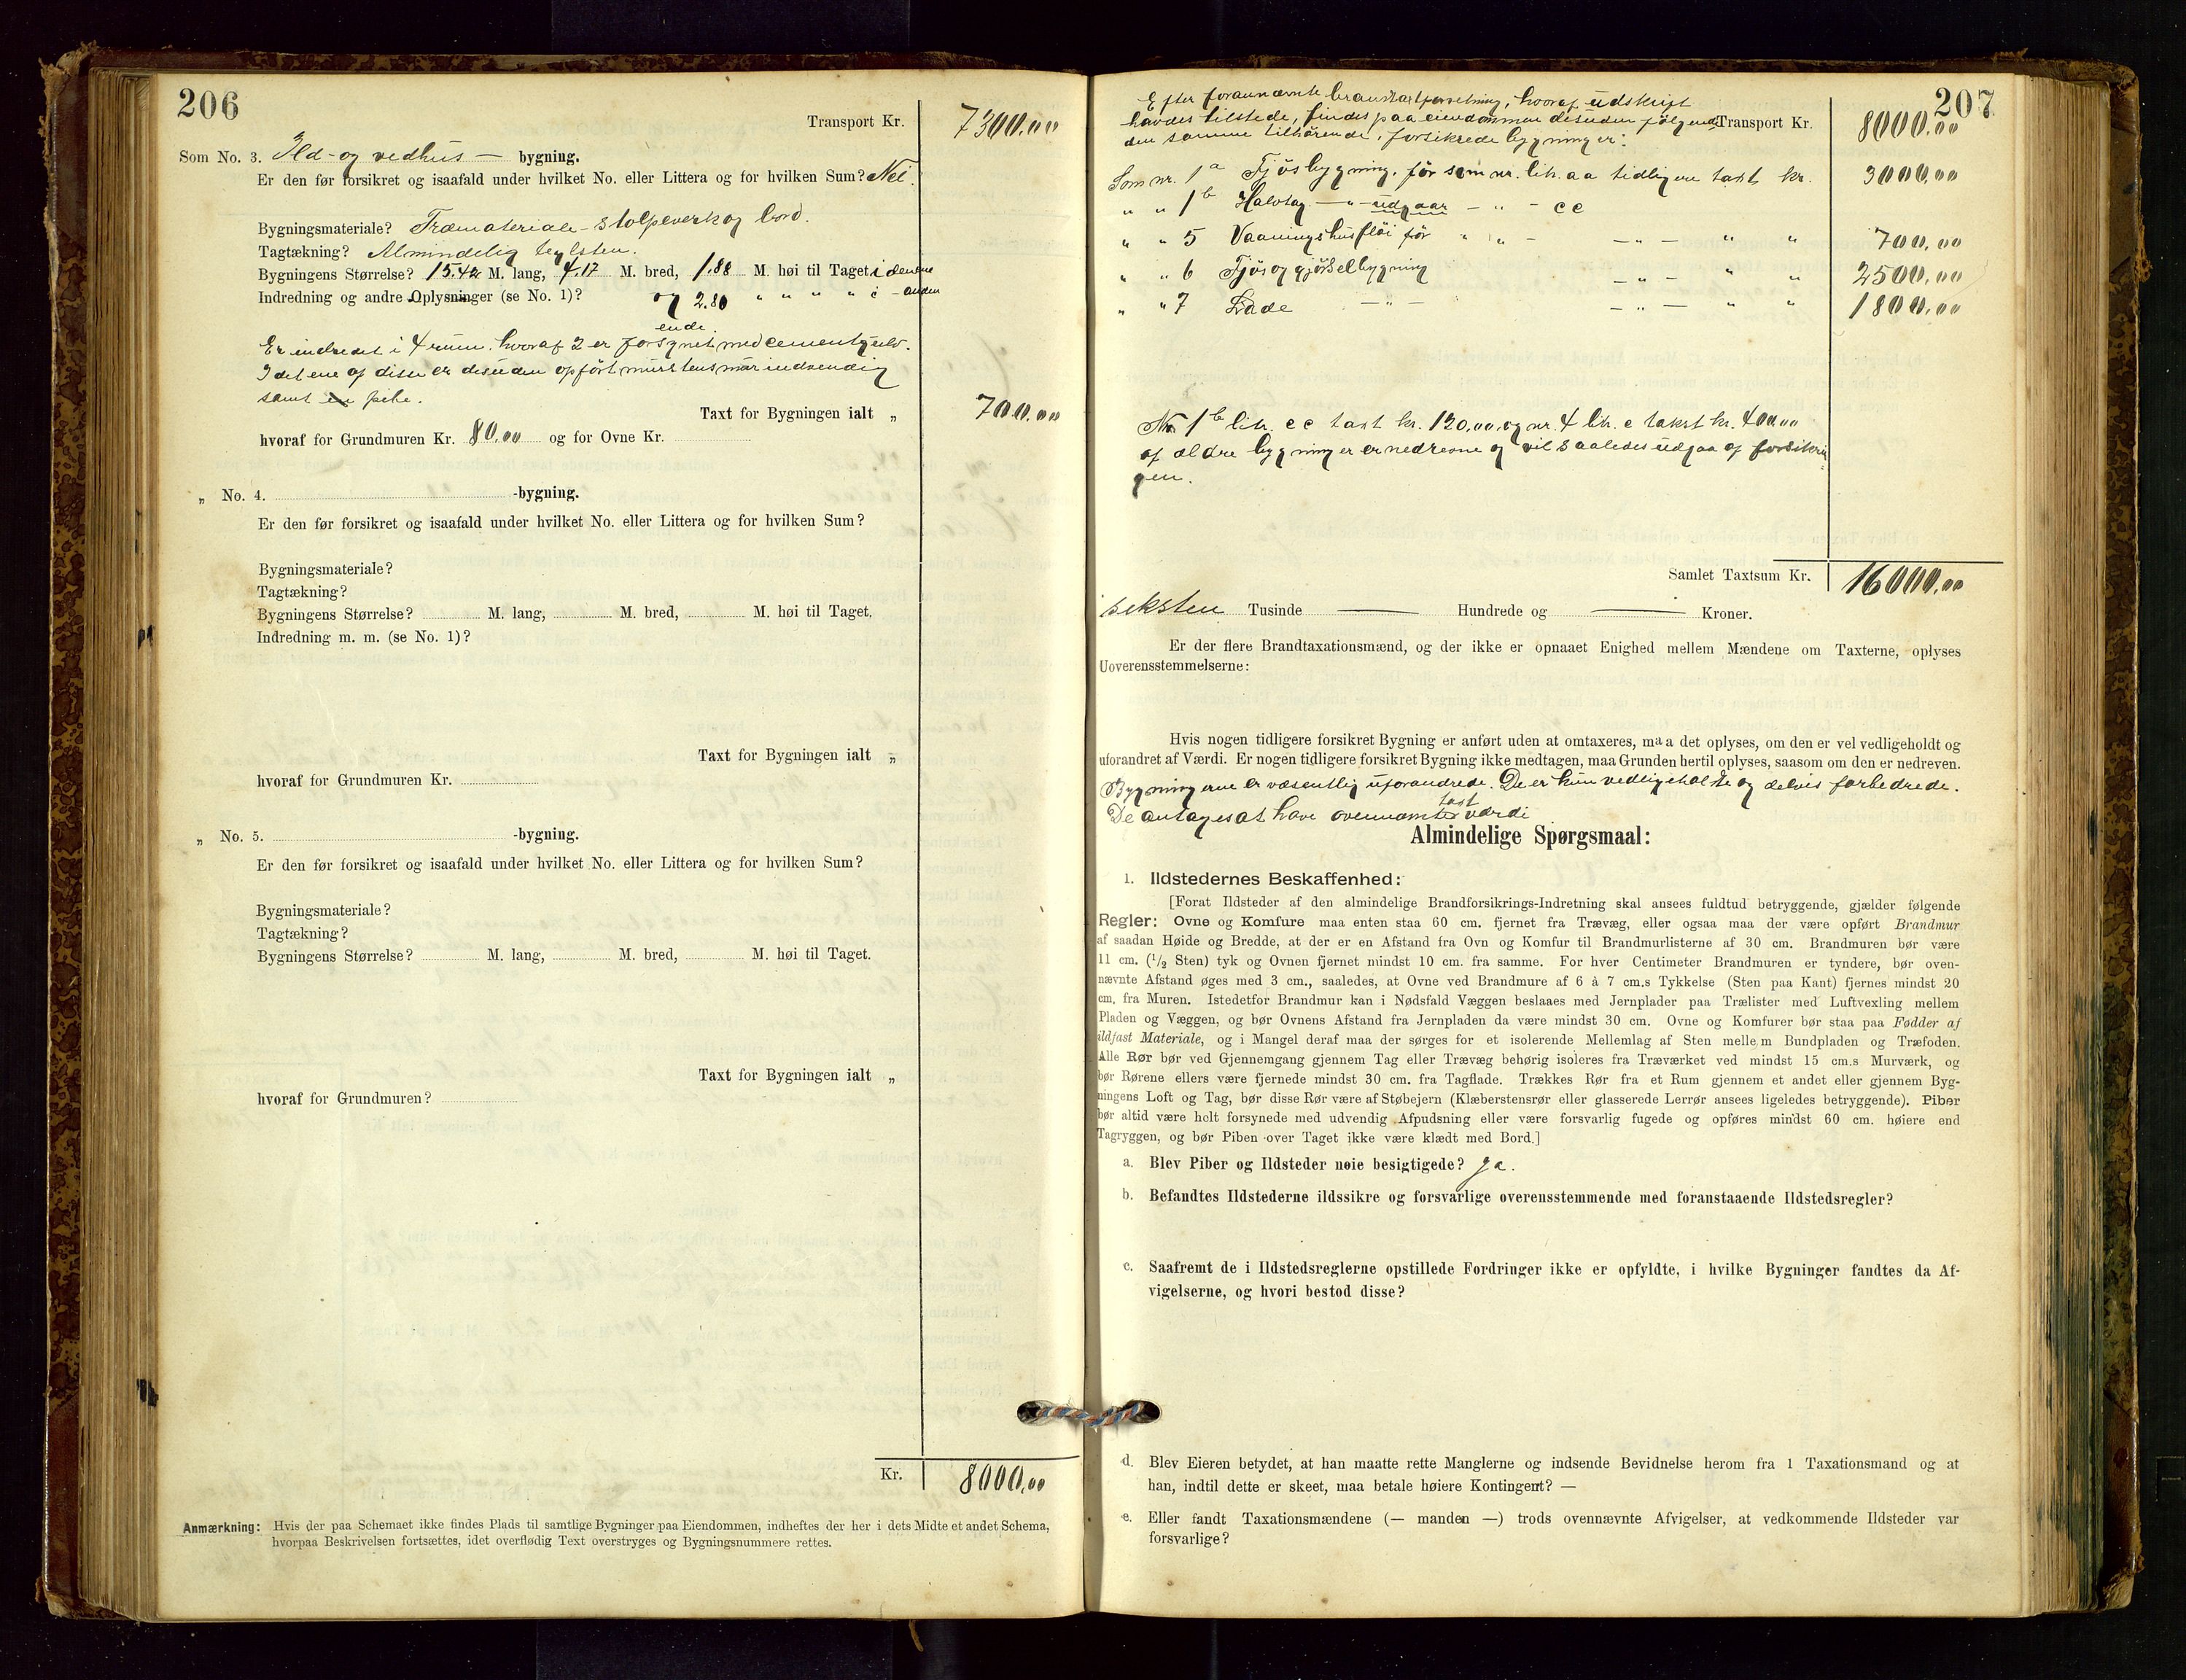 206
Transport Kr. 7300.00
Som No. 3. Ild- og vedhus — bygning.
Er den før forsikret og isaafald under hvilket No. eller Littera og for hvilken Sum? Nei.
Bygningsmateriale? Træmateriale - stolpeverk og bord.
Tagtækning? Almindelig teglsten.
Bygningens Størrelse? 15.42 M. lang, 4.17 M. bred, 1.88 M. høi til Taget i den ene
Indredning og andre Oplysninger (se No. 1)? og 2.80 " " " " i - anden
ende.
Er indredet i 4 rum. hvoraf 2 er forsynet med cementgulv.
I det ene af disse er desuden opført murstensmur indvendig
samt en pibe.
Taxt for Bygningen ialt „ 700.00
hvoraf for Grundmuren Kr. 80.00 og for Ovne Kr.
„ No. 4. -bygning.
Er den før forsikret og isaafald under hvilket No. eller Littera og for hvilken Sum?
Bygningsmateriale?
Tagtækning?
Bygningens Størrelse? M. lang, M. bred, M. høi til Taget.
Indredning m. m. (se No. 1)?
Taxt for Bygningen ialt „
hvoraf for Grundmuren Kr.
„ No. 5. -bygning.
Er den før forsikret og isaafald under hvilket No. eller Littera og for hvilken Sum?
Bygningsmateriale?
Tagtækning?
Bygningens Størrelse? M. lang, M. bred, M. høi til Taget.
Taxt for Bygningen ialt „
hvoraf for Grundmuren?
Kr. 8000.00
Anmærkning: Hvis der paa Schemaet ikke findes Plads til samtlige Bygninger paa Eiendommen, indheftes der her i dets Midte et andet Schema,
hvorpaa Beskrivelsen fortsættes, idet overflødig Text overstryges og Bygningsnummere rettes.
207
Efter forannævnte branntaxtforretning, hvoraf udskrift
havdes tilstede, findes paa eiendommen desuden følgende Transport Kr. 8000.00
den samme tilhørende, forsikrede bygninger:
Som nr. 1a Fjøsbygning. før som nr. litr. aa tidligere taxt kr. 3000.00
" " 1b Halvtag. — " — udgaar — " - cc
" " 5 Vaaningshusfløi før " " - — " — " " 700.00
" " 6 Fjøs og gjødselbygning — " — " 2500.00
" " 7 Lade — " — — " — " " 1800.00
Nr. 1b litr. cc taxt kr. 120.00. og nr. 4 litr. e takst kr. 400.00
af ældre bygninger er nedrevne og vil saaledes udgaa af forsikrin
gen.
Samlet Taxtsum Kr. 16000.00
seksten Tusinde — Hundrede og — Kroner.
Er der flere Brandtaxationsmænd, og der ikke er opnaaet Enighed mellem Mændene om Taxterne, oplyses
Uoverensstemmelserne:
Hvis nogen tidligere forsikret Bygning er anført uden at omtaxeres, maa det oplyses, om den er vel vedligeholdt og
uforandret af Værdi. Er nogen tidligere forsikret Bygning ikke medtagen, maa Grunden hertil oplyses, saasom om den er nedreven.
Bygningerne er væsentlig uforandrede. De er kun vedligeholdte og delvis forbedrede.
taxt
De antages at have ovennævnte værdi
Almindelige Spørgsmaal:
1. Ildstedernes Beskaffenhed:
[Forat Ildsteder af den almindelige Brandforsikrings-Indretning skal ansees fuldtud betryggende, gjælder følgende
Regler: Ovne og Komfure maa enten staa 60 cm. fjernet fra Trævæg, eller ogsaa maa der være opført Brandmur
af saadan Høide og Bredde, at der er en Afstand fra Ovn og Komfur til Brandmurlisterne af 30 cm. Brandmuren bør være
11 cm. (1/2 Sten) tyk og Ovnen fjernet mindst 10 cm. fra samme. For hver Centimeter Brandmuren er tyndere, bør oven-
nævnte Afstand øges med 3 cm., saaledes, at Ovne ved Brandmure af 6 à 7 cm.s Tykkelse (Sten paa Kant) fjernes mindst 20
cm. fra Muren. Istedetfor Brandmur kan i Nødsfald Væggen beslaaes med Jernplader paa Trælister med Luftvexling mellem
Pladen og Væggen, og bør Ovnens Afstand fra Jernpladen da være mindst 30 cm. Ovne og Komfurer bør staa paa Fødder af
ildfast Materiale, og i Mangel deraf maa der sørges for et isolerende Mellemlag af Sten mellem Bundpladen og Træfoden.
Alle Rør bør ved Gjennemgang gjennem Tag eller Trævæg behørig isoleres fra Træværket ved mindst 15 cm.s Murværk, og
bør Rørene ellers være fjernede mindst 30 cm. fra Tagflade. Trækkes Rør fra et Rum gjennem et andet eller gjennem Byg-
ningens Loft og Tag, bør disse Rør være af Støbejern (Klæberstensrør eller glasserede Lerrør ansees ligeledes betryggende). Piber
bør altid være helt forsynede med udvendig Afpudsning eller være forsvarlig fugede og opføres mindst 60 cm. høiere end
Tagryggen, og bør Piben over Taget ikke være klædt med Bord.]
a. Blev Piber og Ildsteder nøie besigtigede? Ja.
b. Befandtes Ildstederne ildssikre og forsvarlige overensstemmende med foranstaaende Ildstedsregler?
c. Saafremt de i Ildstedsreglerne opstillede Fordringer ikke er opfyldte, i hvilke Bygninger fandtes da Af-
vigelserne, og hvori bestod disse?
d. Blev Eieren betydet, at han maatte rette Manglerne og indsende Bevidnelse herom fra 1 Taxationsmand og at
han, indtil dette er skeet, maa betale høiere Kontingent? —
e. Eller fandt Taxationsmændene (— manden —) trods ovennævnte Afvigelser, at vedkommende Ildsteder var
forsvarlige?